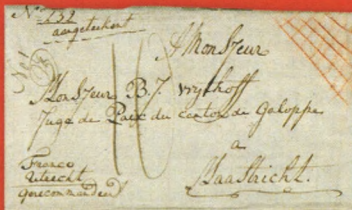 No 232
aangeteekent
A Monsieur
Monsieur B. J. Vrythoff
Juge de Paix du canton de Galoppe
a
Maastricht.
Franco
Utrecht
gerecommandeerd
16